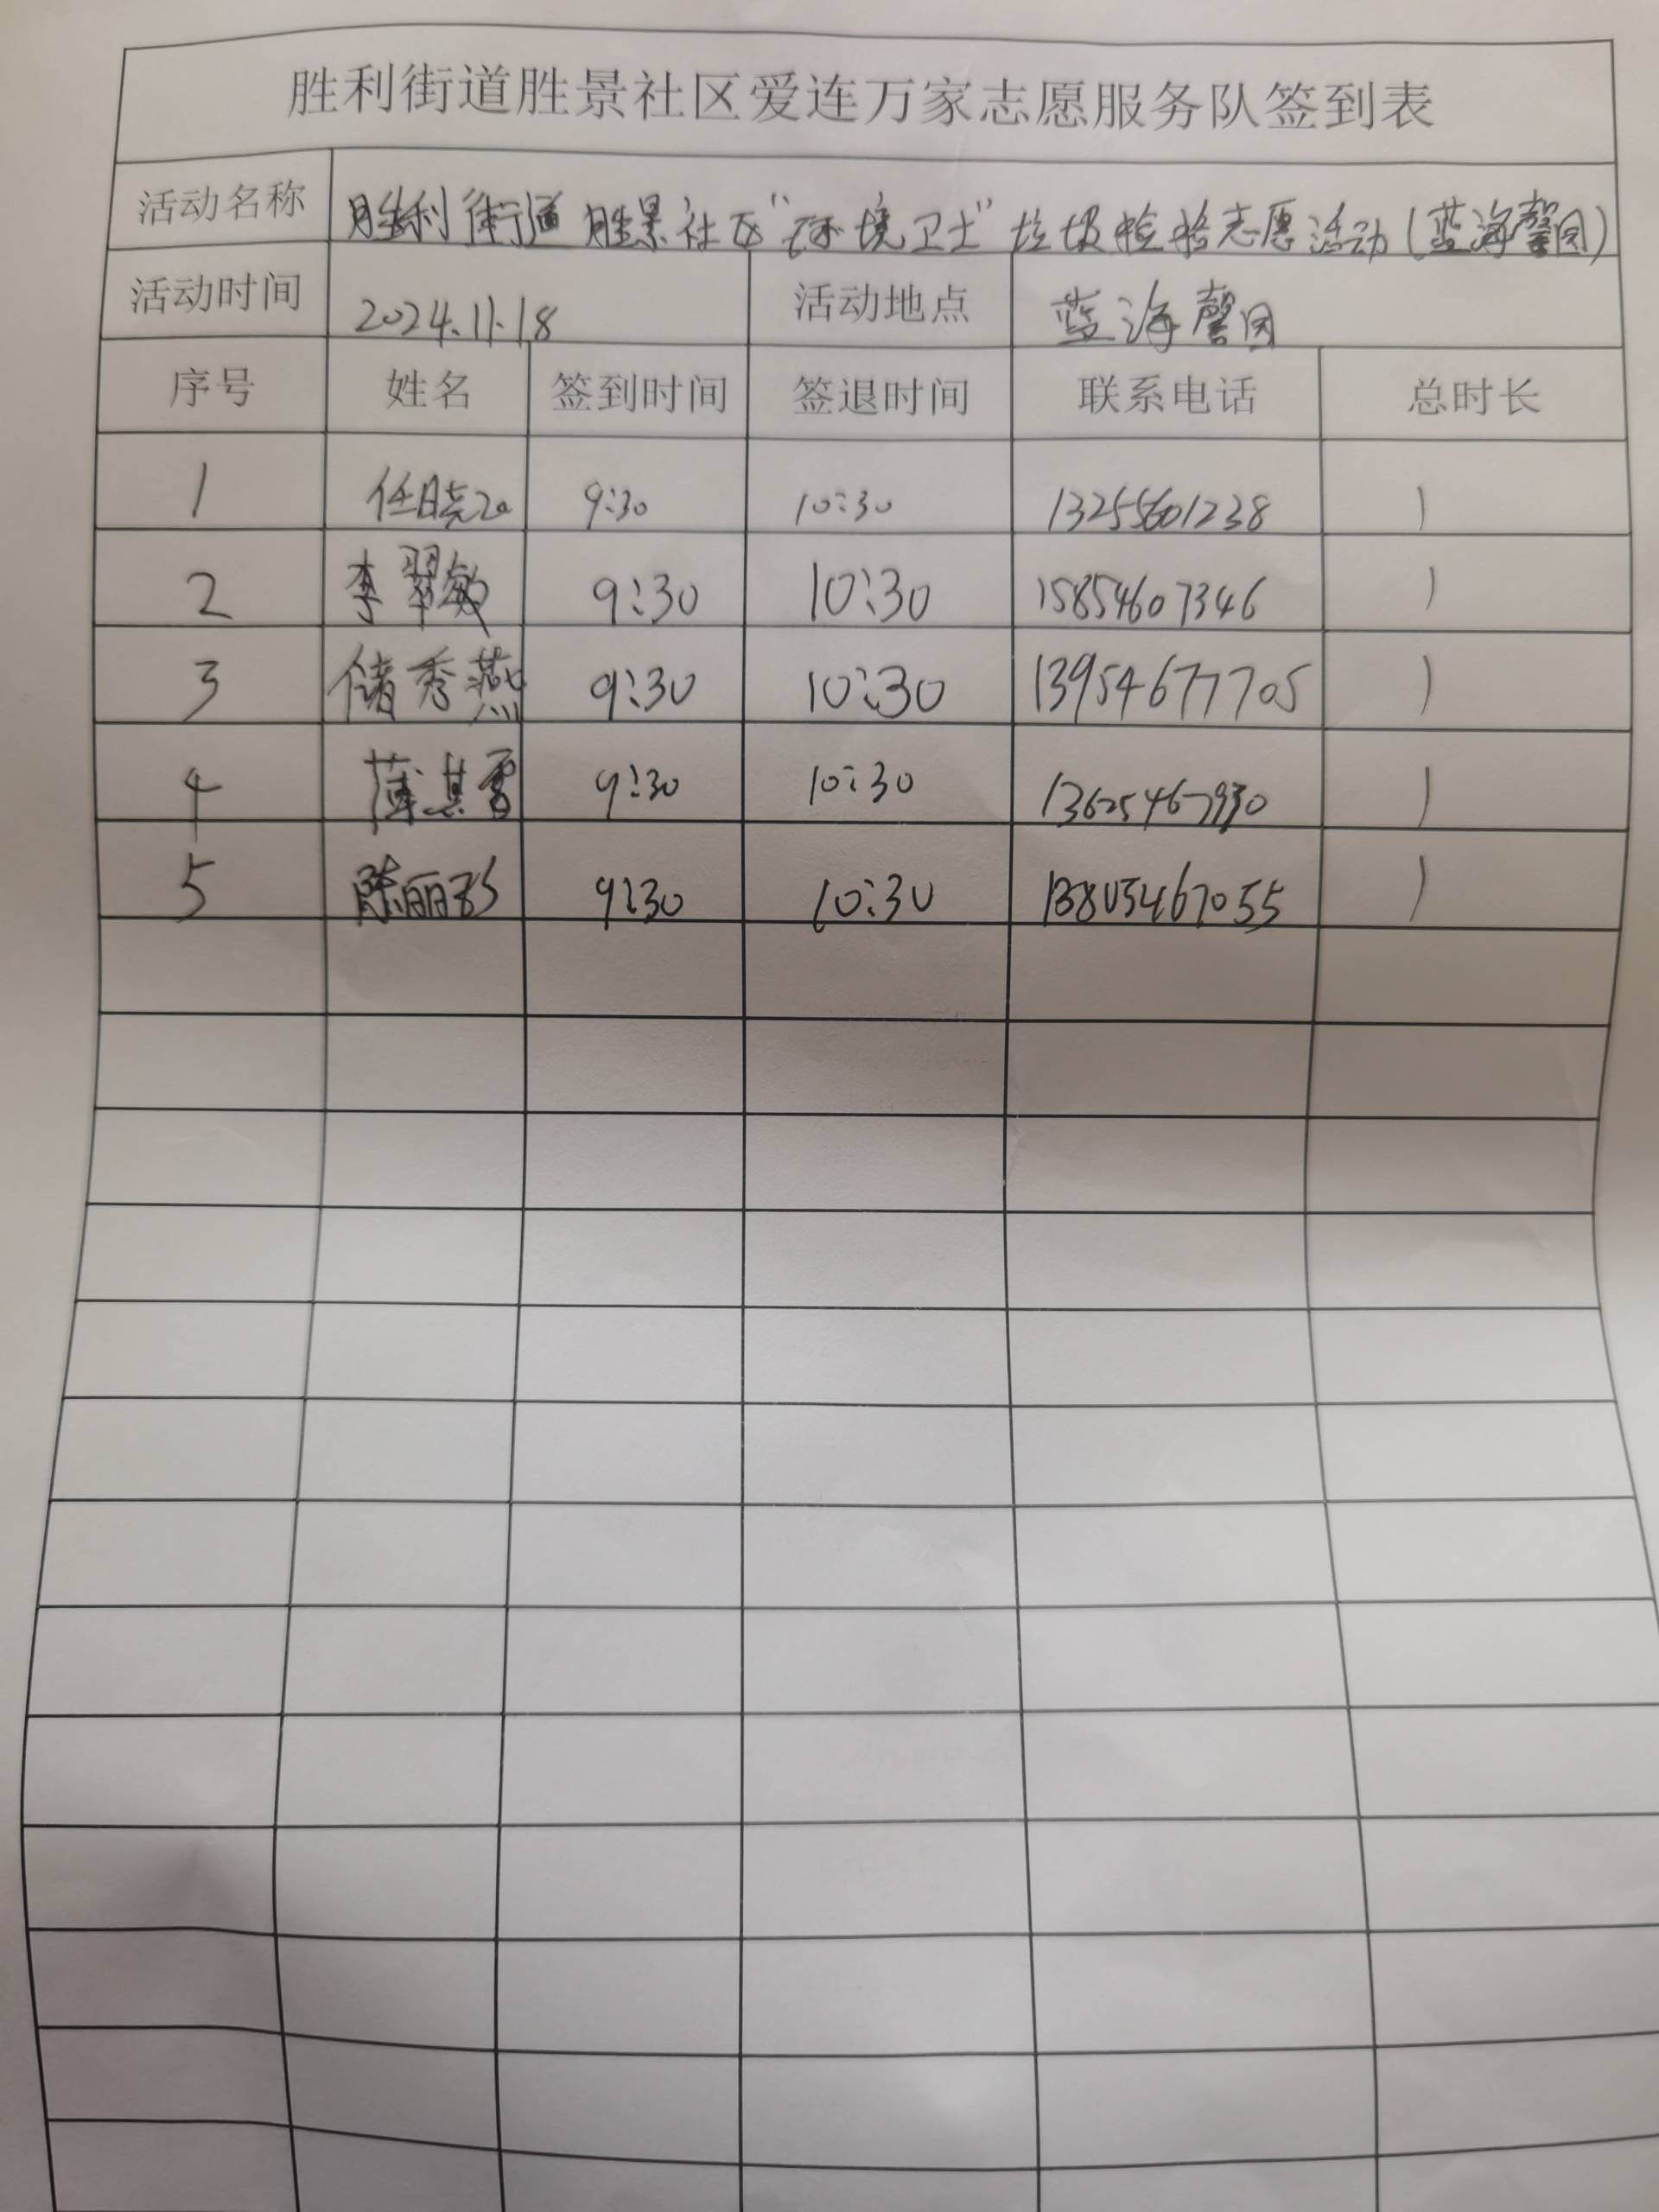 胜利街道胜景社区爱连万家志愿服务队签到表
活动名称 胜利街道胜景社区“环境卫士”垃圾检拾志愿活动(蓝海馨园)
活动时间 2024.11.18 活动地点 蓝海馨园
序号 姓名 签到时间 签退时间 联系电话 总时长
1 任晓 9:30 10:30 13255601238 1
2 李翠敏 9:30 10:30 15854607346 1
3 储秀燕 9:30 10:30 13954677705 1
4 薄其雪 9:30 10:30 13625467930 1
5 陈丽彩 9:30 10:30 13805467055 1